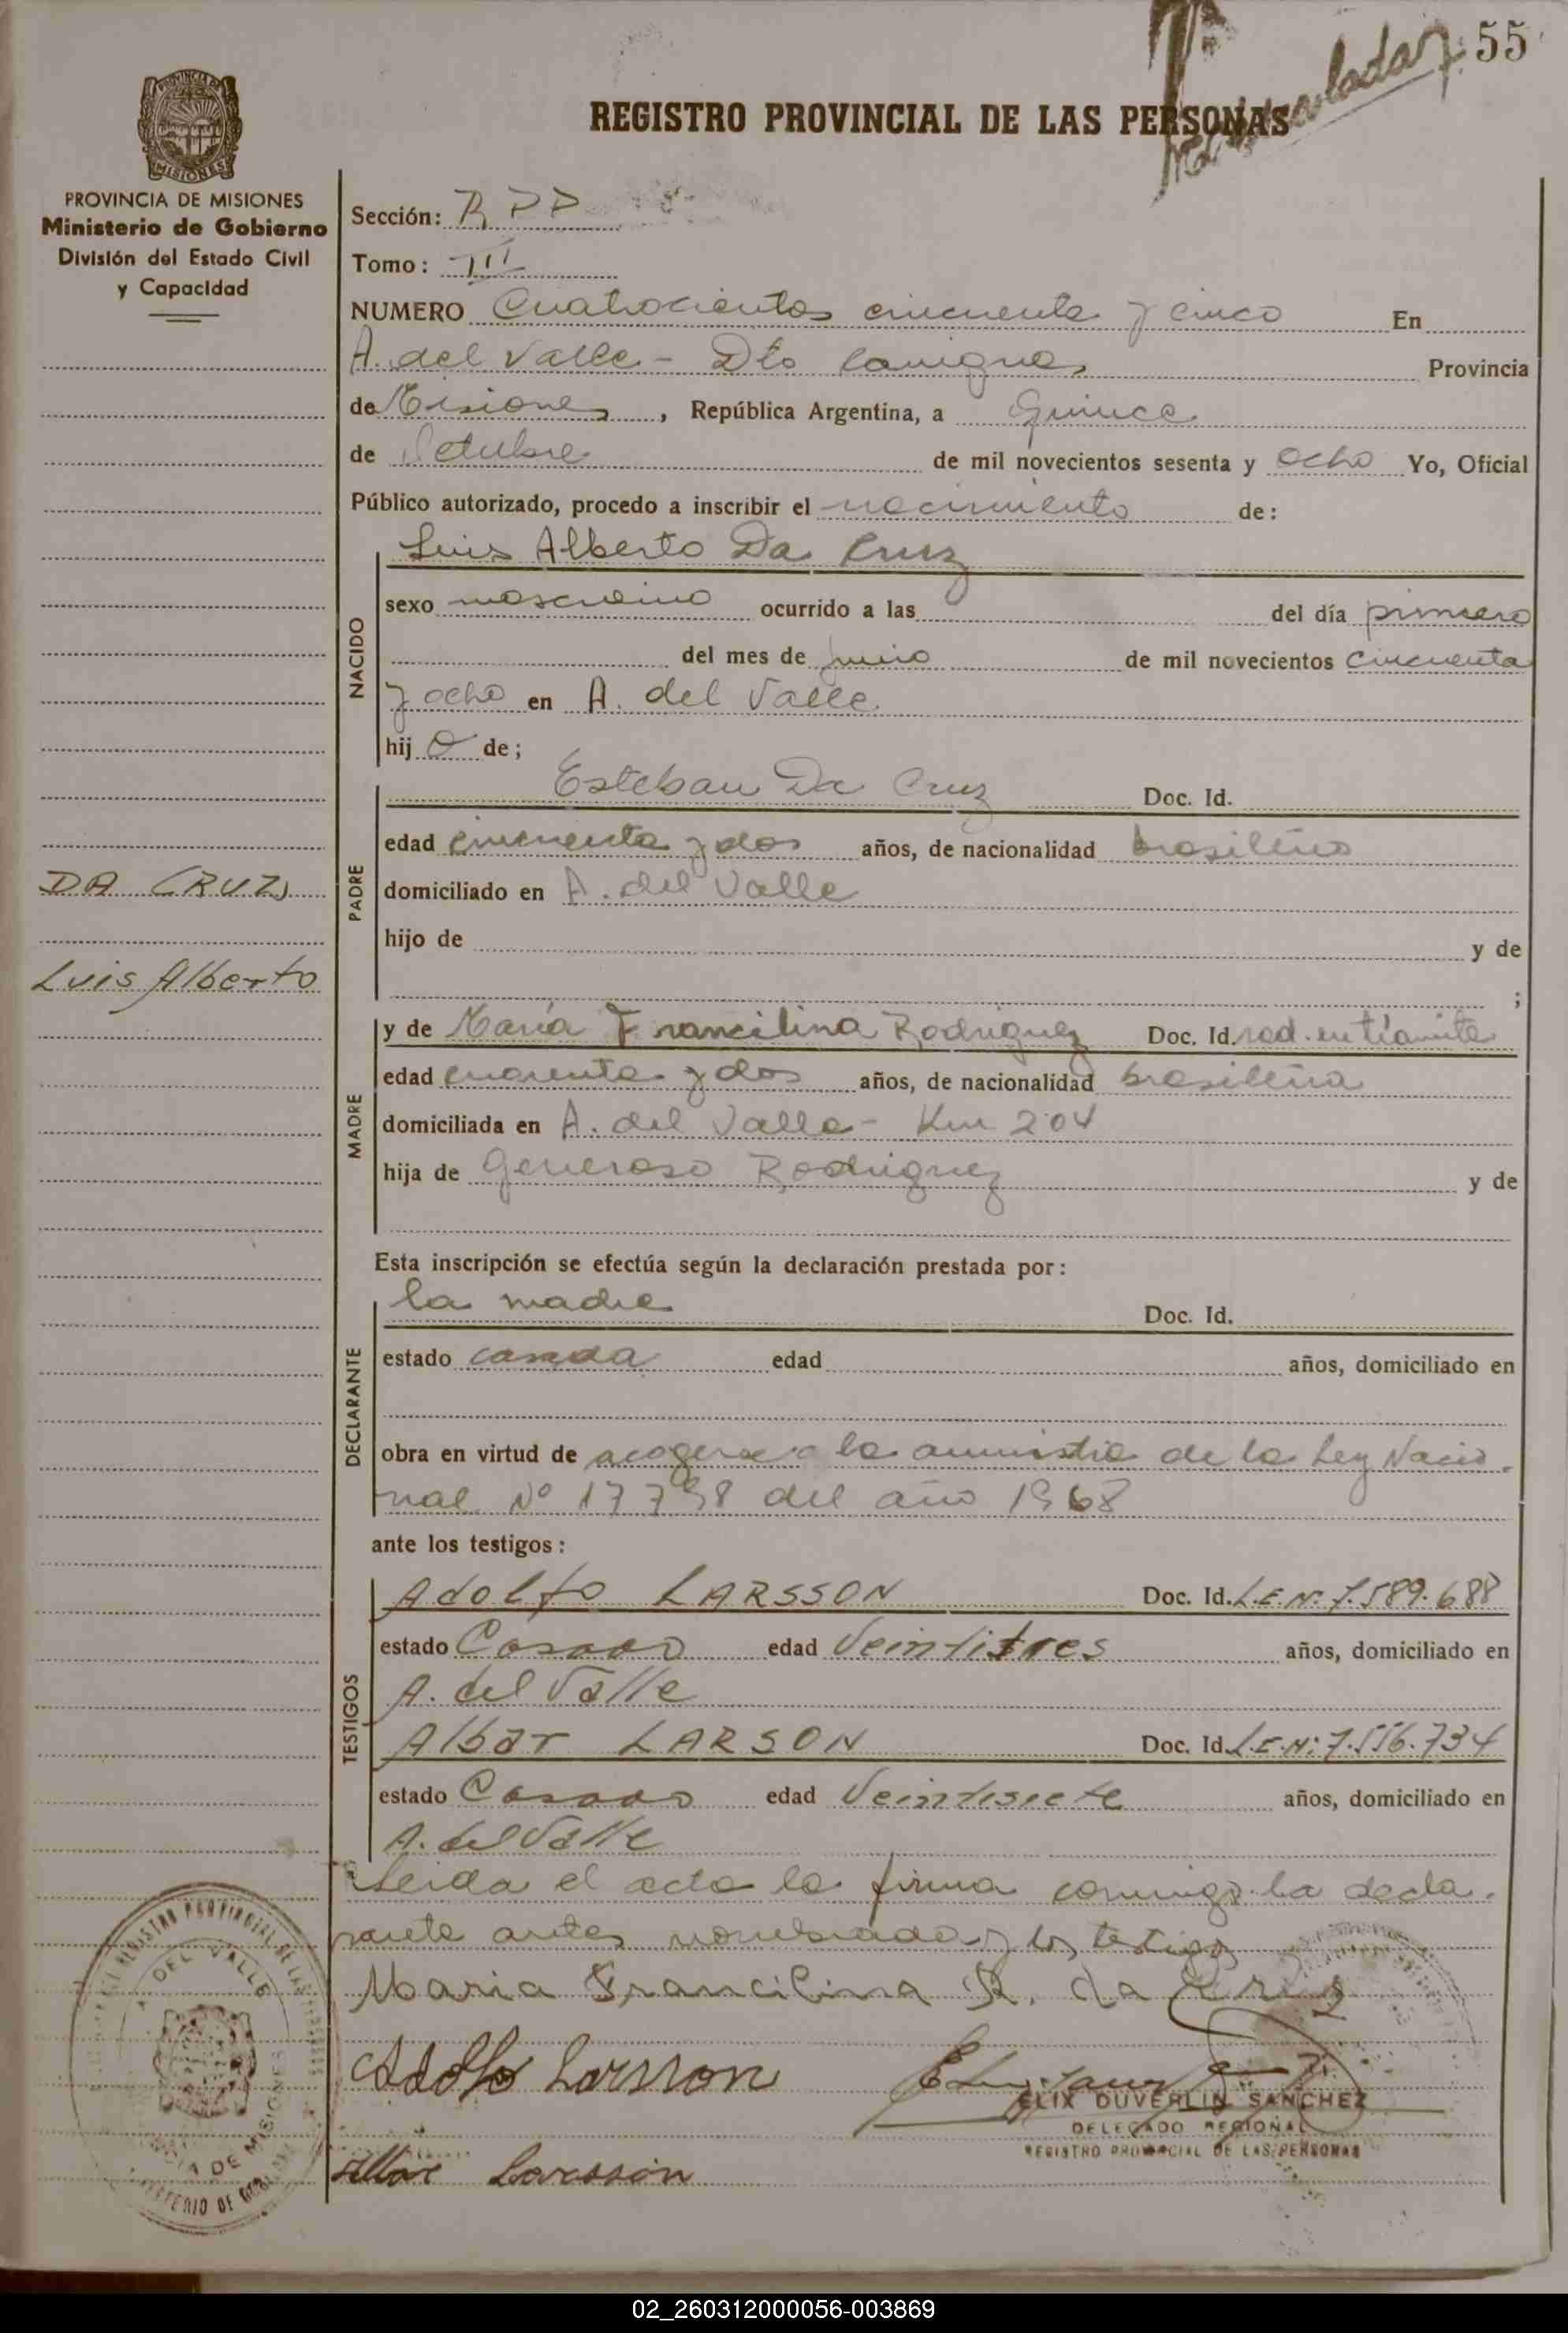 55
REGISTRO PROVINCIAL DE LAS PERSONAS
PROVINCIA DE MISIONES
MISIONES
PROVINCIA DE MISIONES
Ministerio de Gobierno
División del Estado Civil
y Capacidad
Sección:
Tomo: III
NUMERO Cuatrocientos cincuenta y cinco En
A. del Valle - Dto Cainguas Provincia
de Misiones, República Argentina, a Quince
de Octubre de mil novecientos sesenta y ocho Yo, Oficial
Público autorizado, procedo a inscribir el nacimiento de:
NACIDO
Luis Alberto Da Cruz
sexo masculino ocurrido a las del día primero
del mes de junio de mil novecientos cincuenta
y ocho en A. del Valle
hijo de;
PADRE
Esteban Da Cruz Doc. Id.
edad cincuenta y dos años, de nacionalidad brasileño
domiciliado en A. del Valle
hijo de y de
;
DA CRUZ
Luis Alberto
MADRE
y de María Francilina Rodriguez Doc. Id. rad. en trámite
edad cuarenta y dos años, de nacionalidad brasileña
domiciliada en A. del Valle - Km 204
hija de Generoso Rodriguez y de
Esta inscripción se efectúa según la declaración prestada por:
DECLARANTE
la madre Doc. Id.
estado casada edad años, domiciliado en
obra en virtud de acogerse a la amnistia de la Ley Nacio-
nal Nº 17798 del año 1968
ante los testigos:
TESTIGOS
Adolfo LARSSON Doc. Id. L.E.Nº 7.589.688
estado Casado edad Veintitres años, domiciliado en
A. del Valle
Albar LARSON Doc. Id. L.E.N: 7.556.734
estado Casado edad Veintisiete años, domiciliado en
A. del Valle
Leida el acta la firma conmigo la decla-
rante antes nombrada y los testigos
Maria Francilina R. da Cruz
Adolfo Larsson
ELIX DUVERLIN SANCHEZ
DELEGADO REGIONAL
REGISTRO PROVINCIAL DE LAS PERSONAS
Larsson
REGISTRO PROVINCIAL DE LAS
A. DEL VALLE
DE MISIONES
02_260312000056-003869